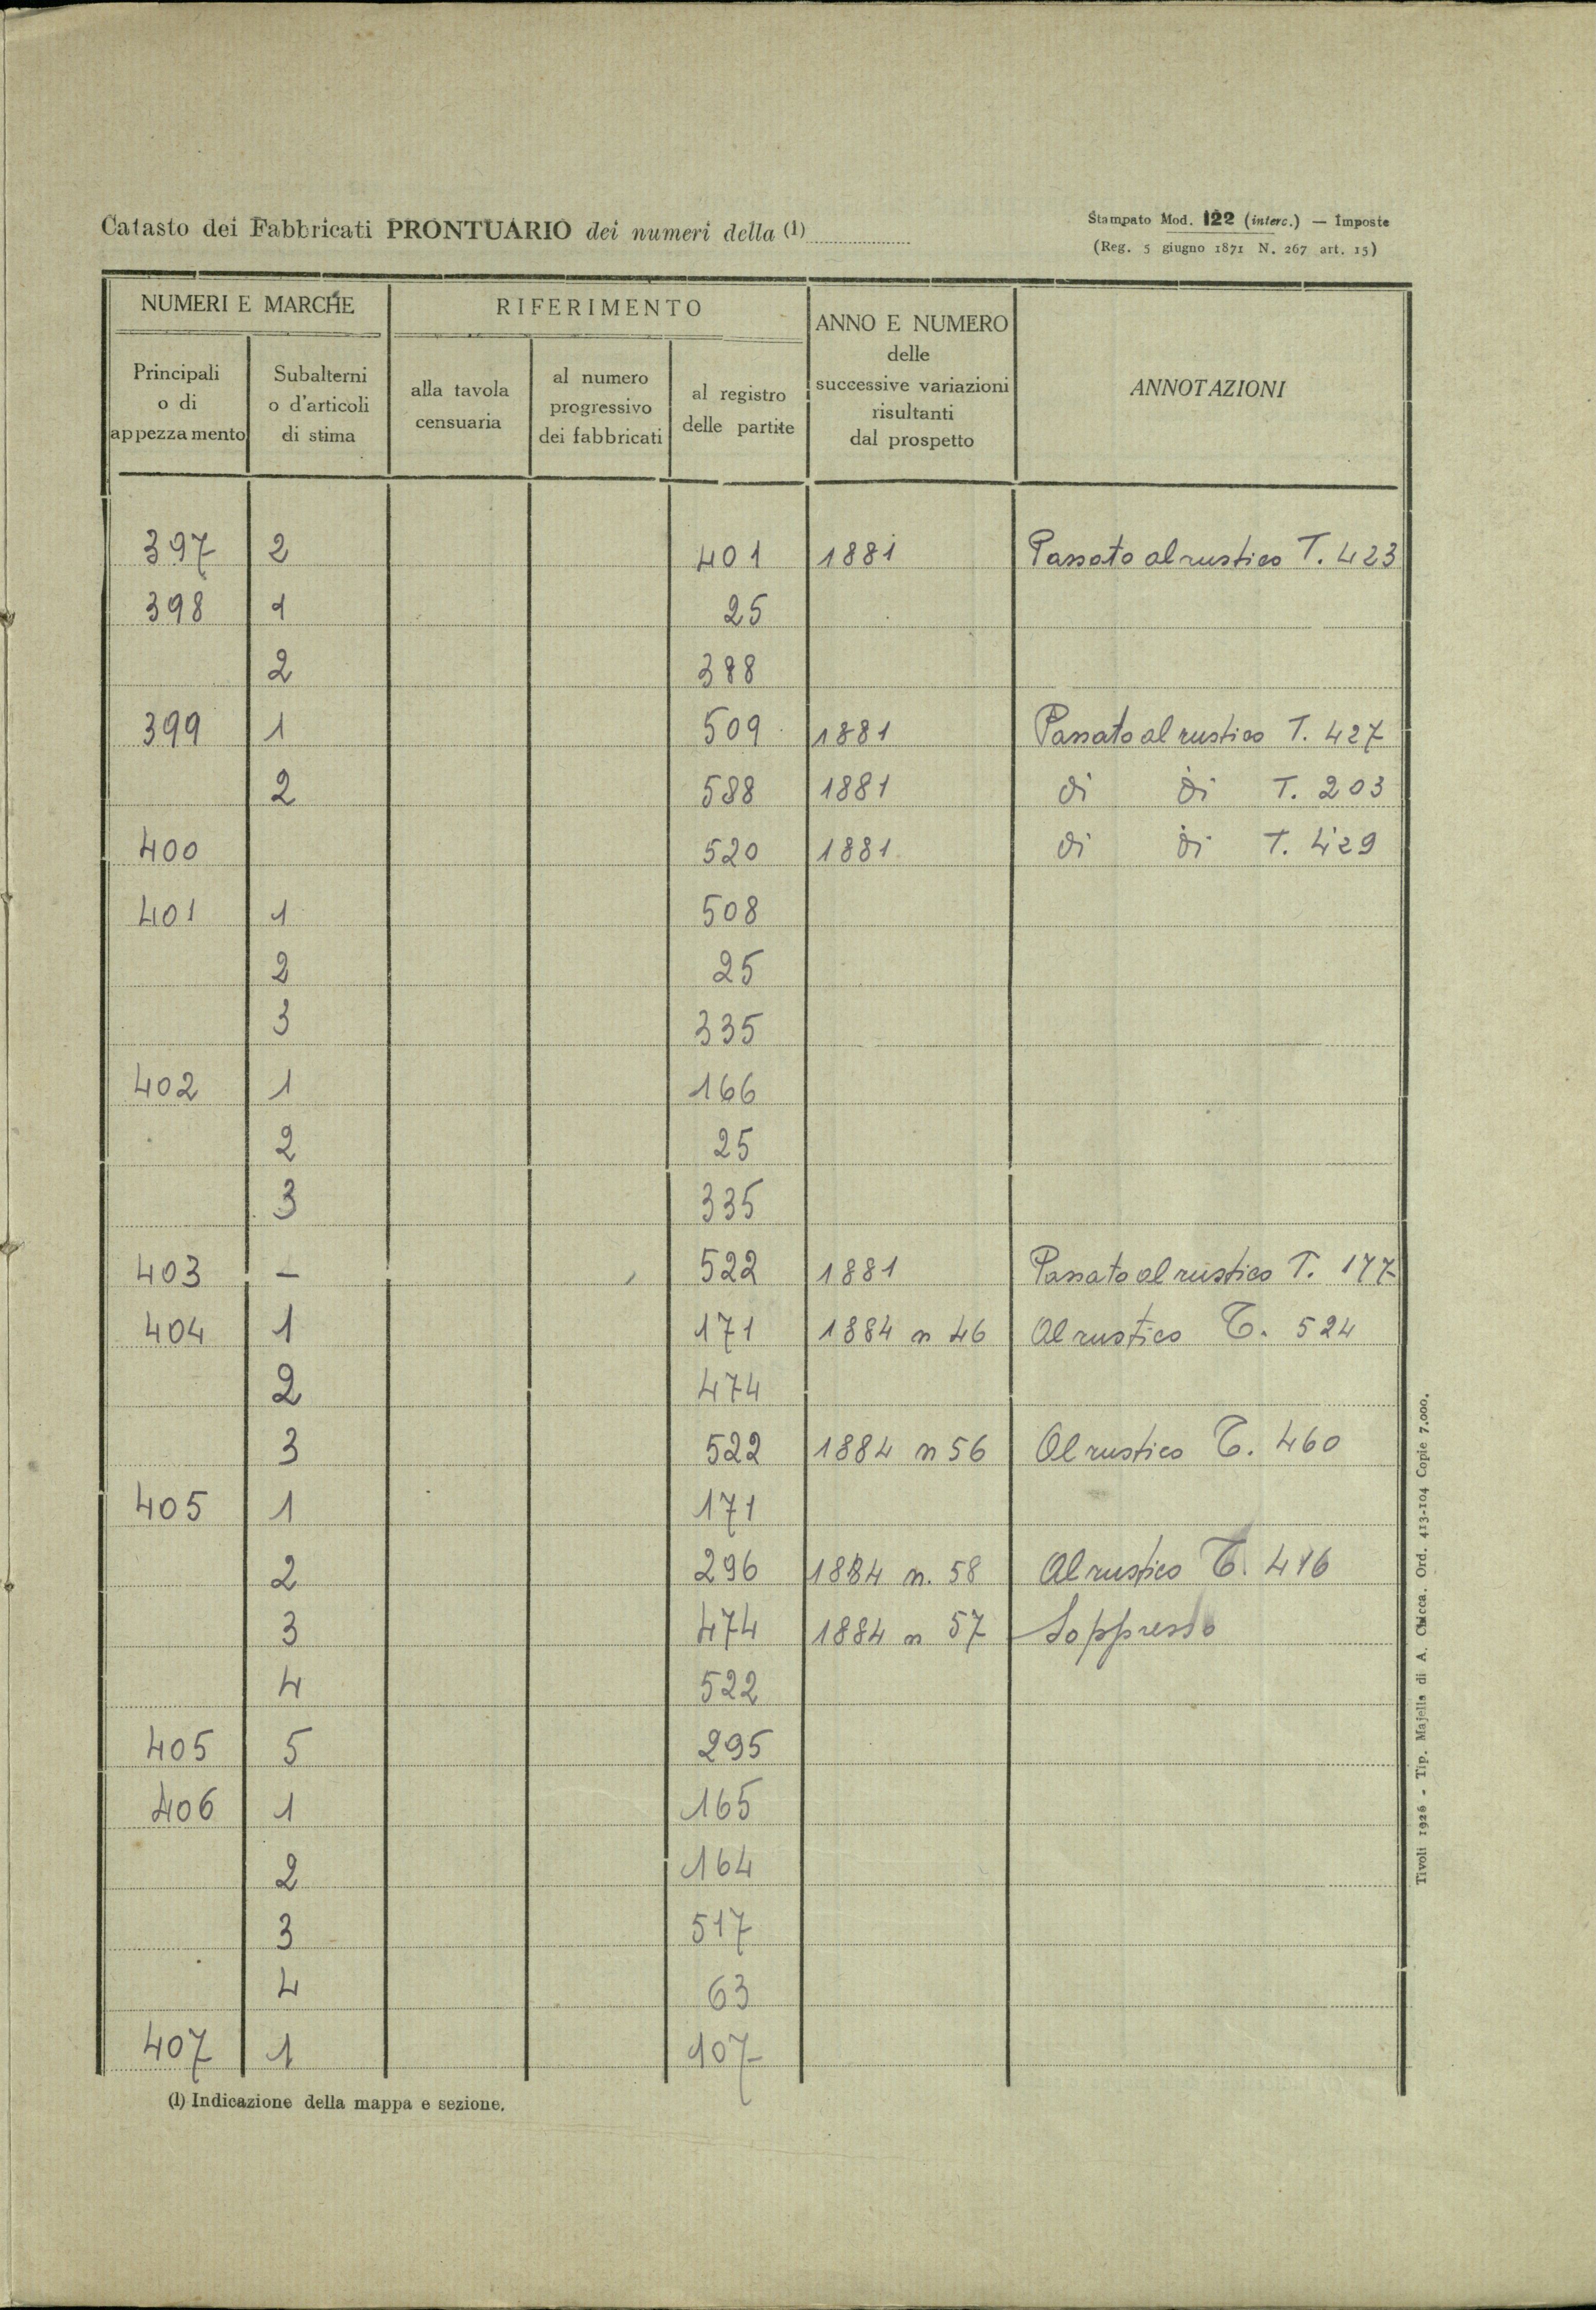 Catasto dei Fabbricati PRONTUARIO dei numeri della (1)
Stampato Mod. 122 (interc.) — Imposte
(Reg. 5 giugno 1871 N. 267 art. 15)
NUMERI E MARCHE
RIFERIMENTO
ANNO E NUMERO
delle
successive variazioni
risultanti
dal prospetto
ANNOTAZIONI
Principali
o di
appezzamento
Subalterni
o d'articoli
di stima
alla tavola
censuaria
al numero
progressivo
dei fabbricati
al registro
delle partite
397 2 401 1881 Passato al rustico T. 423
398 1 25
2 388
399 1 509 1881 Passato al rustico T. 427
2 588 1881 di di T. 203
400 520 1881 di di T. 429
401 1 508
2 25
3 335
402 1 166
2 25
3 335
403 – 522 1881 Passato al rustico T. 177
404 1 171 1884 n 46 Al rustico T. 524
2 474
3 522 1884 n 56 Al rustico T. 460
405 1 171
2 296 1884 n. 58 Al rustico T. 416
3 474 1884 n 57 Soppresso
4 522
405 5 295
406 1 165
2 164
3 517
4 63
407 1 107
(1) Indicazione della mappa e sezione.
Tivoli 1926 - Tip. Majella di A. Chicca. Ord. 413-104 Copie 7.000.